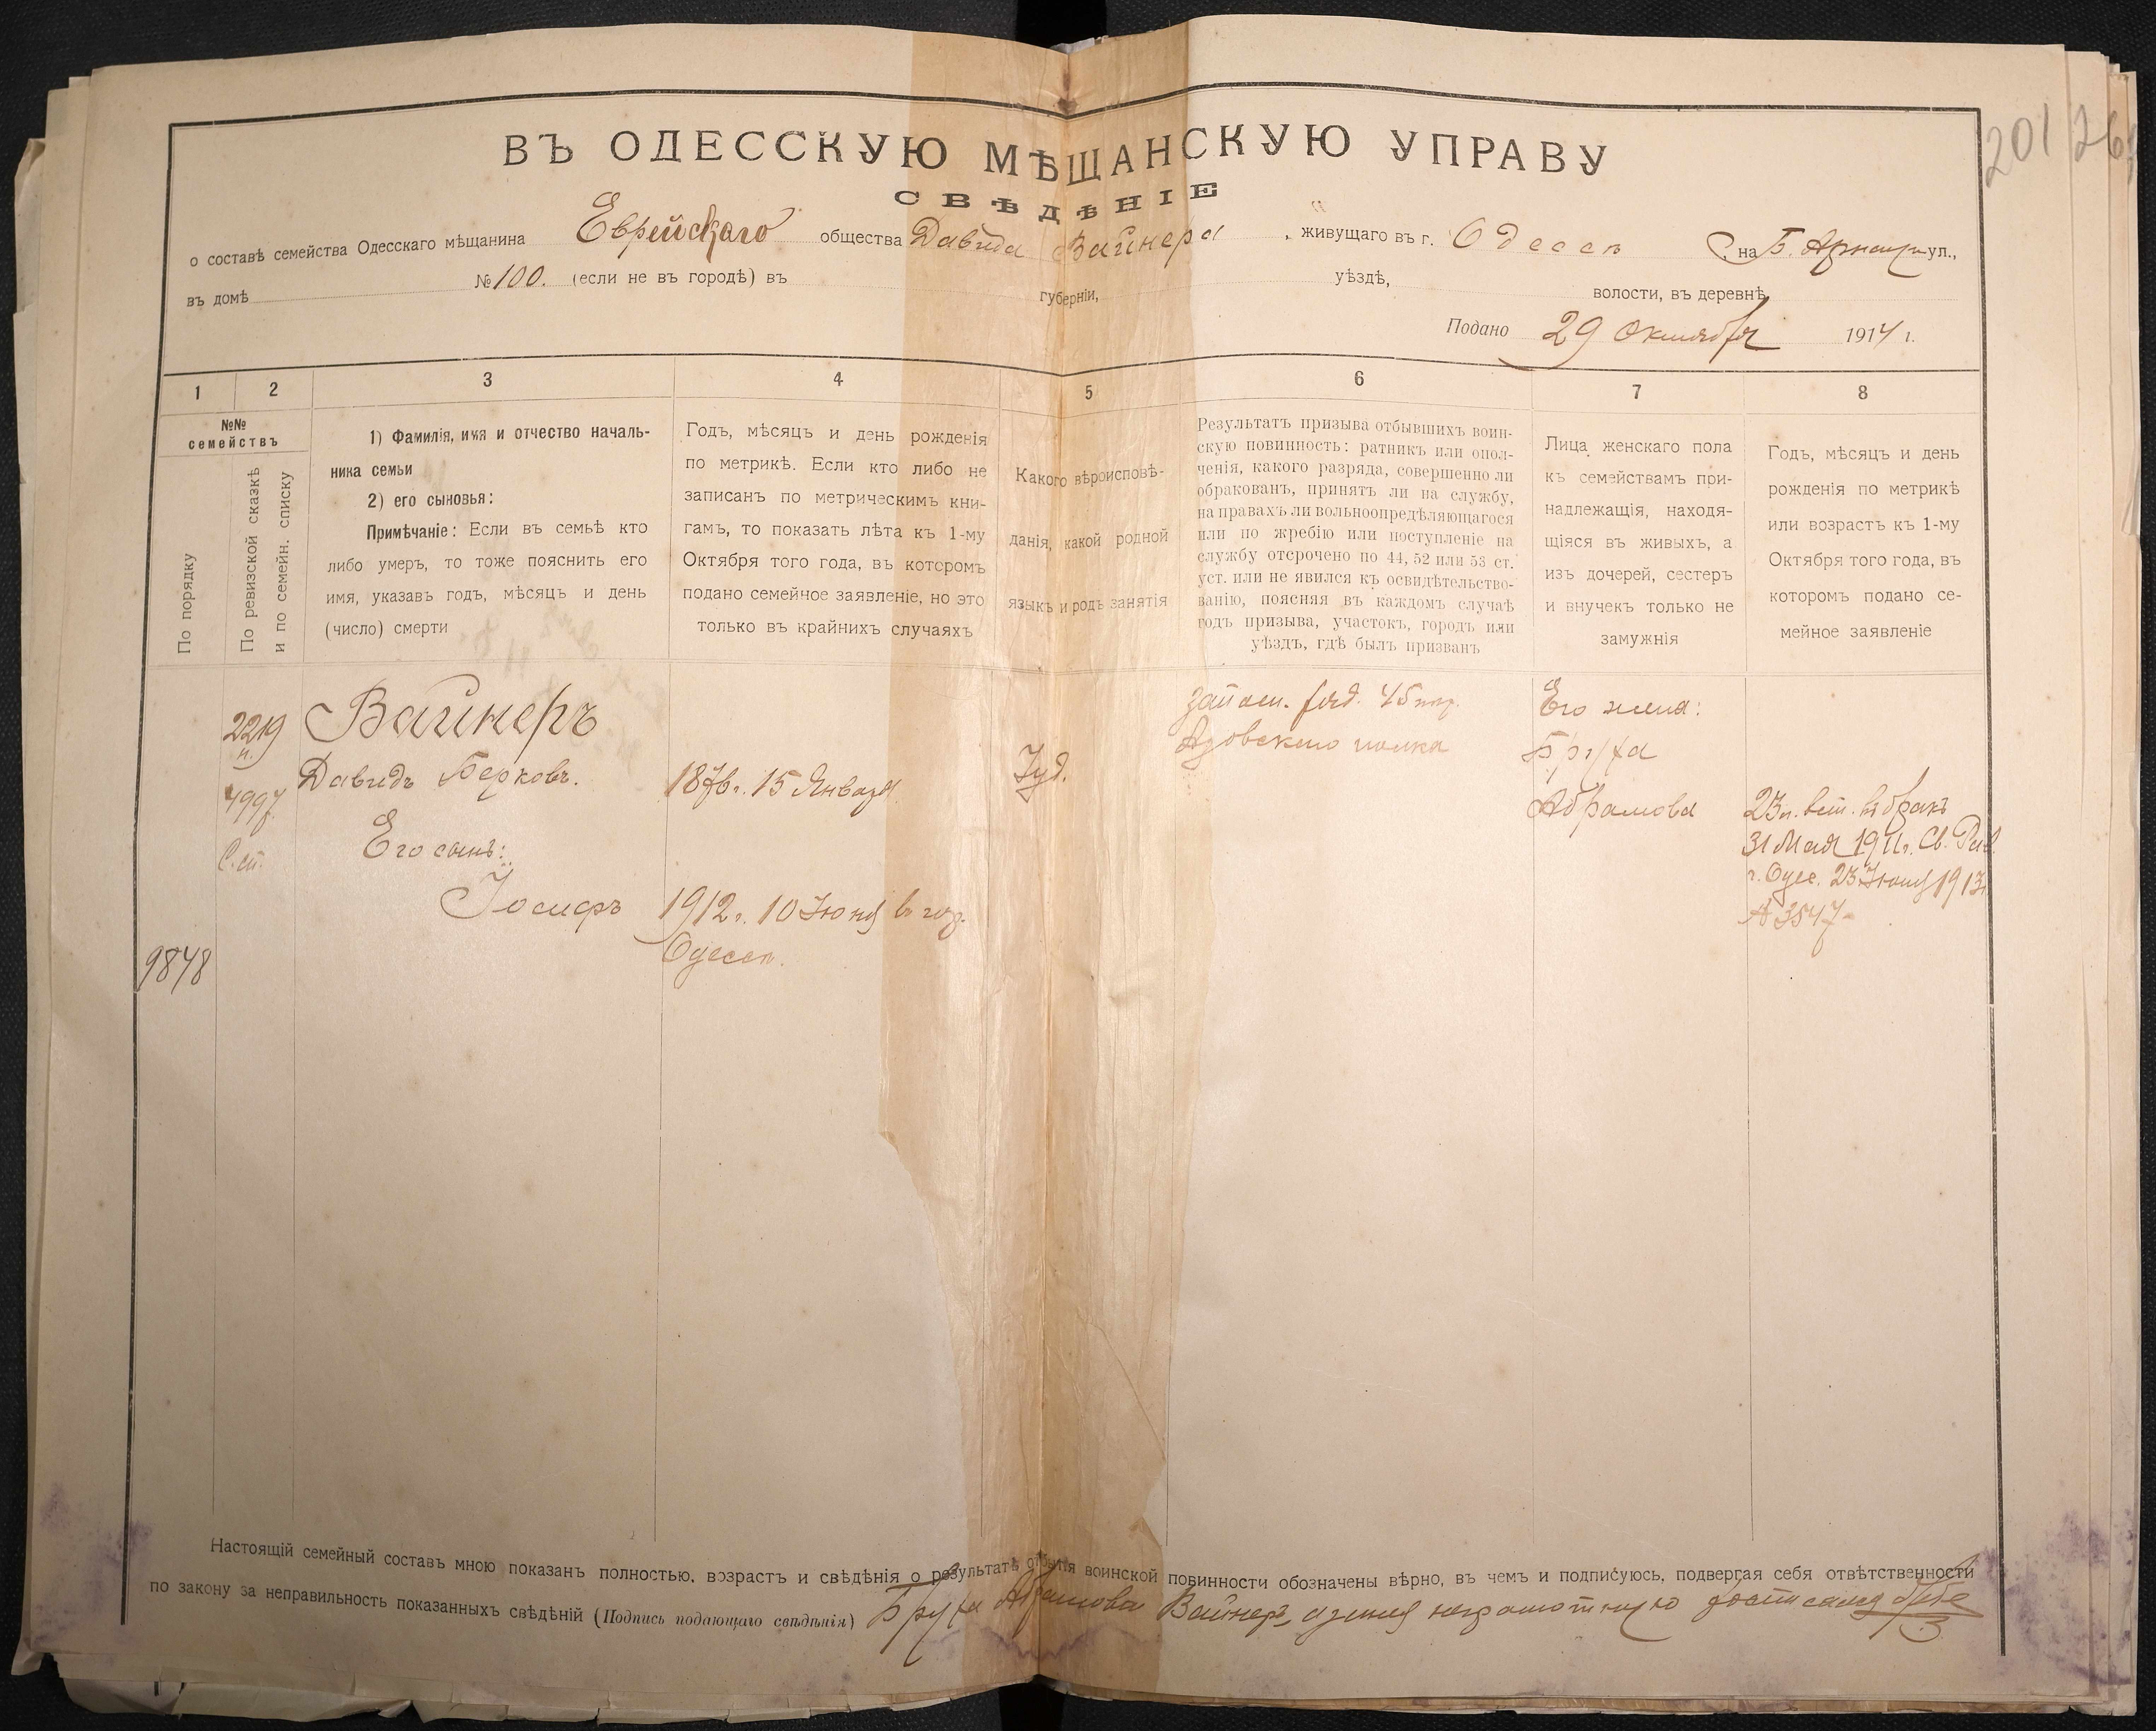 201
26
ВЪ ОДЕССКУЮ МѢЩАНСКУЮ УПРАВУ
СВѢДѢНІЕ
о составѣ семейства Одесскаго мѣщанина Еврейскаго общества Давида Вайнера, живущаго въ г. Одессѣ, на Б. Арнаут ул.,
въ домѣ № 100. (если не въ городѣ) въ губерніи, уѣздѣ, волости, въ деревнѣ
Подано 29 Октября 1914 г.
1 2 3 4 5 6 7 8
№№ семействъ
По порядку
По ревизской сказкѣ
и по семейн. списку
1) Фамилія, имя и отчество началь-
ника семьи
2) его сыновья:
Примѣчаніе: Если въ семьѣ кто
либо умеръ, то тоже пояснить его
имя, указавъ годъ, мѣсяцъ и день
(число) смерти
Годъ, мѣсяцъ и день рожденія
по метрикѣ. Если кто либо не
записанъ по метрическимъ кни-
гамъ, то показать лѣта къ 1-му
Октября того года, въ которомъ
подано семейное заявленіе, но это
только въ крайнихъ случаяхъ
Какого вѣроисповѣ-
данія, какой родной
языкъ и родъ занятія
Результатъ призыва отбывшихъ воин-
скую повинность: ратникъ или опол-
ченія, какого разряда, совершенно ли
обракованъ, принятъ ли на службу,
на правахъ ли вольноопредѣляющагося
или по жребію или поступленіе на
службу отсрочено по 44, 52 или 53 ст.
уст. или не явился къ освидѣтельство-
ванію, поясняя въ каждомъ случаѣ
годъ призыва, участокъ, городъ или
уѣздъ, гдѣ былъ призванъ
Лица женскаго пола
къ семействамъ при-
надлежащія, находя-
щіяся въ живыхъ, а
изъ дочерей, сестеръ
и внучекъ только не
замужнія
Годъ, мѣсяцъ и день
рожденія по метрикѣ
или возрастъ къ 1-му
Октября того года, въ
которомъ подано се-
мейное заявленіе
2219
п.
4997
С. сп.
9848
Вайнеръ
Давидъ Берковъ.
Его сынъ:
Іосифъ
1876 г. 15 Января
1912 г. 10 Іюня въ гор.
Одессѣ.
Іуд.
запасн. ряд. 45 пех.
Азовскаго полка
Его жена:
Бруха
Абрамова
23 л. вст. въ бракъ
31 Мая 1911 г. Св. Рав.
г. Одес. 23 Іюня 1913 г.
№ 3547
Настоящій семейный составъ мною показанъ полностью, возрастъ и свѣдѣнія о результатѣ отбытія воинской повинности обозначены вѣрно, въ чемъ и подписуюсь, подвергая себя отвѣтственности
по закону за неправильность показанныхъ свѣдѣній (Подпись подающаго свѣдѣнія) Бруха Абрамова Вайнеръ, а за нея неграмотную